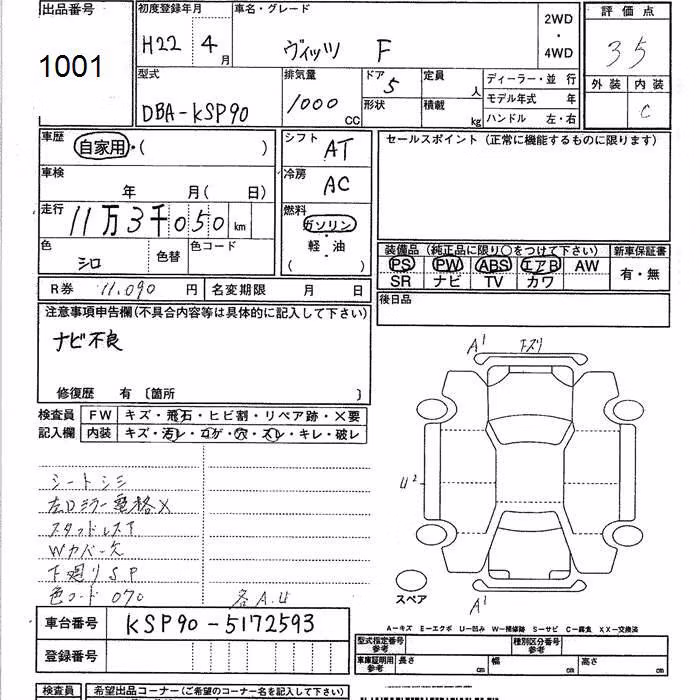 出品番号
1001
初度登録年月
H22 4月
車名・グレード
ヴィッツ F
2WD
・
4WD
評価点
35
外装 内装
C
型式
DBA-KSP90
排気量
1000 CC
ドア 5
形状
定員 人
積載 kg
ディーラー・並行
モデル年式 年
ハンドル 左・右
車歴
自家用・( )
車検
年 月( 日)
走行
11万3千050 km
色
シロ
色替
色コード
シフト
AT
冷房
AC
燃料
ガソリン
・
軽油
( )
セールスポイント(正常に機能するものに限ります)
装備品(純正品に限り○をつけて下さい)
PS PW ABS エアB AW
SR ナビ TV カワ
新車保証書
有・無
R券 11,090 円
名変期限 月 日
後日品
注意事項申告欄(不具合内容等は具体的に記入して下さい)
ナビ不良
修復歴 有 〔箇所 〕
検査員
記入欄
FW キズ・飛石・ヒビ割・リペア跡・X要
内装 キズ・汚レ・コゲ・穴・スレ・キレ・破レ
シートシミ
左Dミラー電格X
スタッドレスT
Wカバー欠
下廻りSP
色コード 070
各A.U
A1 下ズリ
U2
A1
スペア
A-キズ E-エクボ U-凹み W-補修跡 S-サビ C-腐食 XX-交換済
車台番号 KSP90-5172593
登録番号
型式指定番号
参考
種別区分番号
参考
車庫証明用
参考
長さ cm
幅 cm
高さ cm
検査員
希望出品コーナー(ご希望のコーナー名を記入下さい)